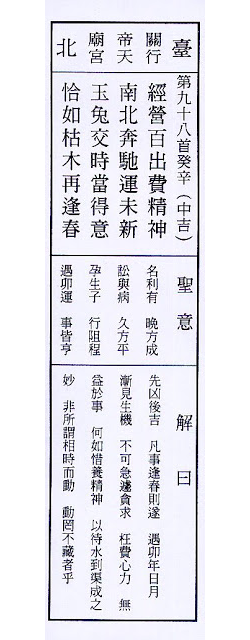 臺北
關帝廟
行天宮
第九十八首癸辛(中吉)
經營百出費精神
南北奔馳運未新
玉兔交時當得意
恰如枯木再逢春
聖意
名利有 晚方成
訟與病 久方平
孕生子 行阻程
遇卯運 事皆亨
解曰
先凶後吉 凡事逢春則遂 遇卯年日月
漸見生機 不可急遽貪求 枉費心力 無
益於事 何如惜養精神 以待水到渠成之
妙 非所謂相時而動 動罔不藏者乎